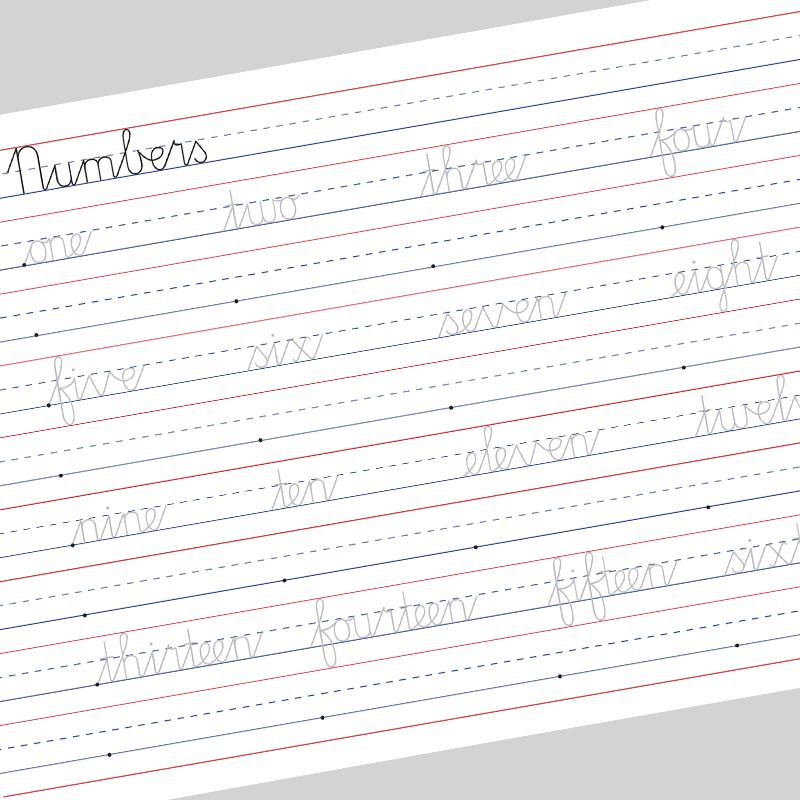 Numbers
one two three four
five six seven eight
nine ten eleven
thirteen fourteen fifteen